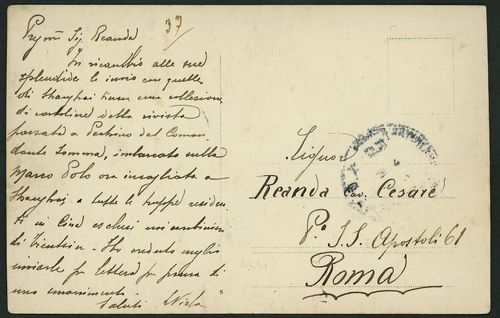 37
Preg.mo Sig. Reanda
In ricambio alle sue
splendide le invio con quelle
di Shanghai una collezione
di cartoline della rivista
passata a Pechino dal Coman
dante Somma, imbarcato sulla
Marco Polo ora incagliata a
Shanghai a tutte le truppe residen
ti in Cina
di Tientsin - Ho creduto meglio
unirle in lettera per paura di
uno smarrimento
Saluti
Signor
Reanda Cav. Cesare
P.a S.S. Apostoli 61
Roma